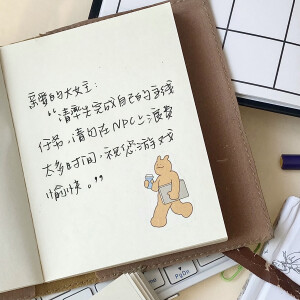 亲爱的大女主：
“请率先完成自己的主线
任务，请勿在NPC上浪费
太多时间，祝您游戏
愉快。”
PgDn